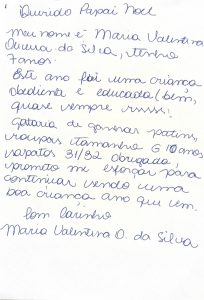 Querido Papai Noel
Meu nome é Maria Valentina
Oliveira da Silva, tenho
7 anos.
Este ano fui uma criança
obediente e educada (bem,
quase sempre russs.
Gostaria de ganhar patins,
roupas tamanho G 10 anos,
sapatos 31/32 obrigada,
prometo me esforçar para
continuar sendo uma
boa criança ano que vem.
Com carinho
Maria Valentina O. da Silva